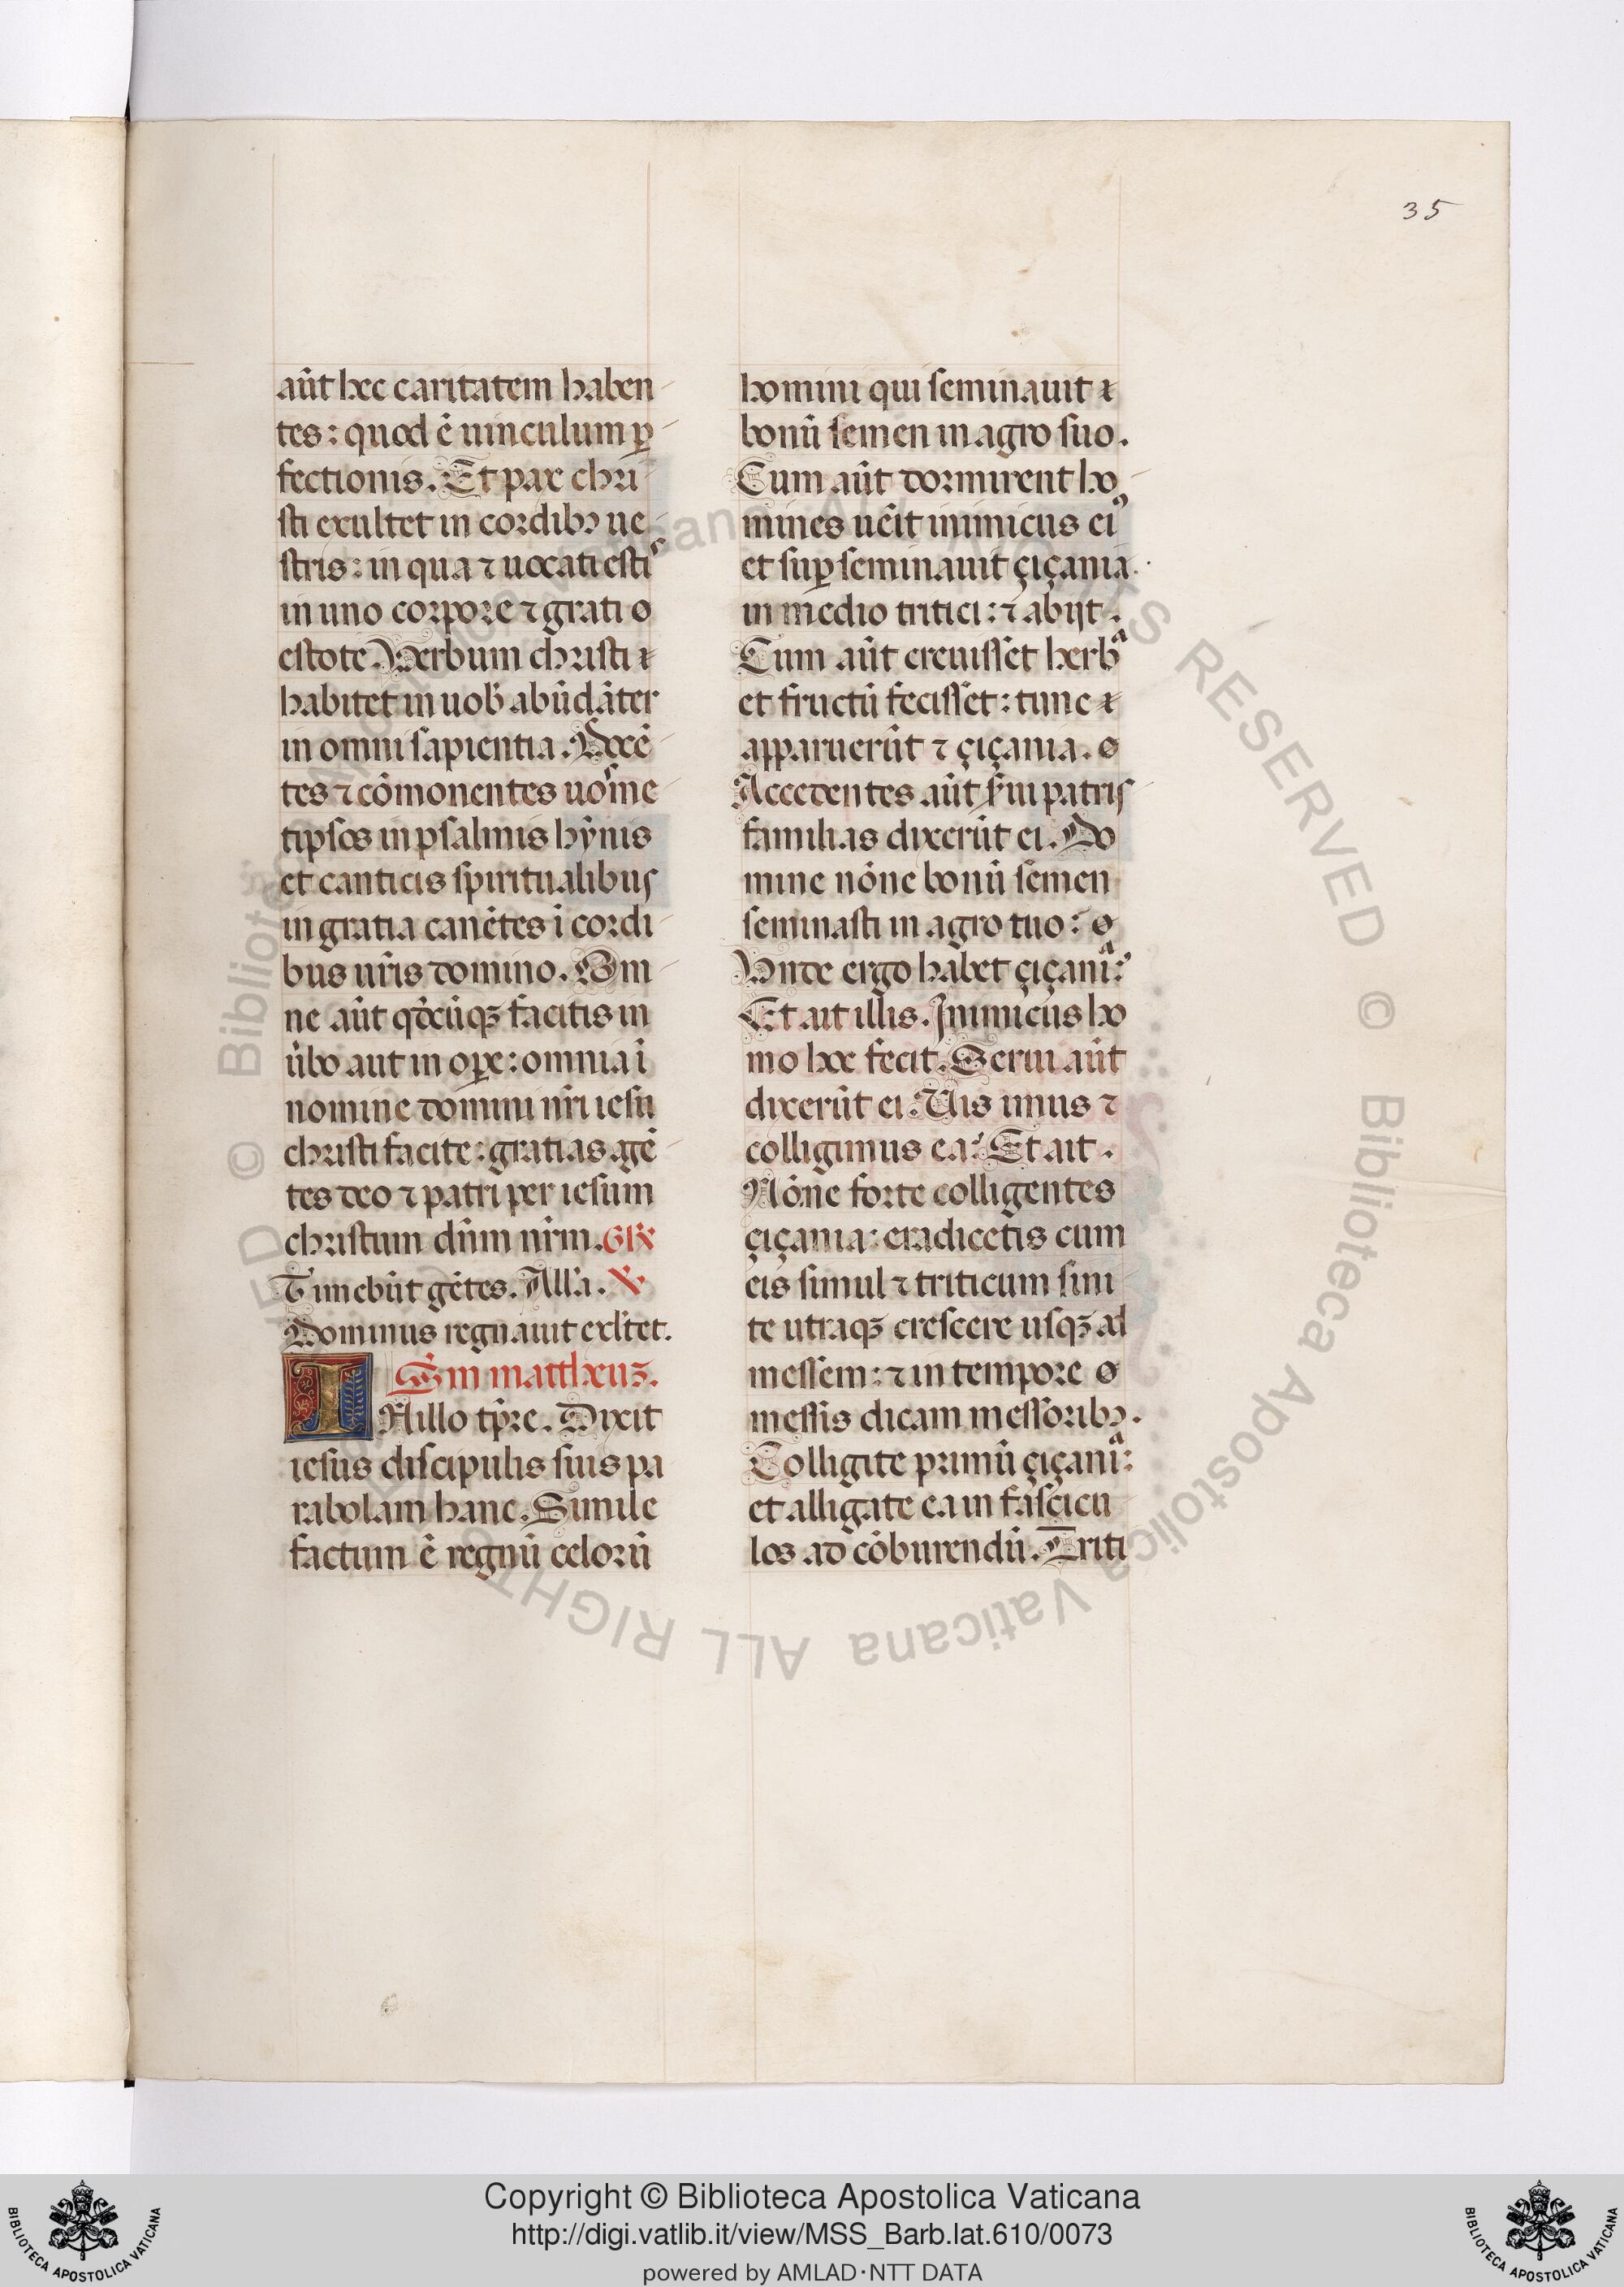 35
aût hec caritatem haben
tes: quod ê uinculum ꝑ
fectionis. Et pax chri
sti exultet in cordibꝫ ue
stris: in qua ⁊ uocati estis
in uno corpore ⁊ grati
estote. Verbum christi
habitet in uob̃ abûdâter
in omni sapientia. Docê
tes ⁊ cômonentes uosme
tipsos in psalmis hỹnis
et canticis spiritualibus
in gratia canêtes î cordi
bus ur̃is domino. Om
ne aût qđcûqꝫ facitis in
ûbo aut in oꝑe: omnia î
nomine domini nr̃i iesu
christi facite: gratias agê
tes deo ⁊ patri per iesum
christum dñm nr̃m. GR
Timebût gêtes. All'a. V
Dominus regnauit exl'tet.
Sm mattheuꝫ.
INillo tp̃re. Dixit
iesus discipulis suis pa
rabolam hanc. Simile
factum ê regnû celorû
homini qui seminauit
bonû semen in agro suo.
Cum aût dormirent ho
mines uêit inimicus eiꝰ
et suꝑseminauit çiçania
in medio tritici: ⁊ abijt.
Cum aût creuisset herba
et fructû fecisset: tunc
apparuerût ⁊ çiçania.
Accedentes aût s̃ui patris
familias dixerût ei. Do
mine nône bonû semen
seminasti in agro tuo:
Vnde ergo habet çiçania:
Et ait illis. Inimicus ho
mo hoc fecit. Serui aût
dixerût ei. Uis imus ⁊
colligimus ea: Et ait.
Nône forte colligentes
çiçania: eradicetis cum
eis simul ⁊ triticum sini
te utraqꝫ crescere usqꝫ ad
messem: ⁊ in tempore
messis dicam messoribꝫ.
Colligite primû çiçania:
et alligate ea in fascicu
los ad côburendû. Triti
© Biblioteca Apostolica Vaticana ALL RIGHTS RESERVED © Biblioteca Apostolica Vaticana ALL RIGHTS RESERVED
BIBLIOTECA APOSTOLICA VATICANA
Copyright © Biblioteca Apostolica Vaticana
http://digi.vatlib.it/view/MSS_Barb.lat.610/0073
powered by AMLAD·NTT DATA
BIBLIOTECA APOSTOLICA VATICANA